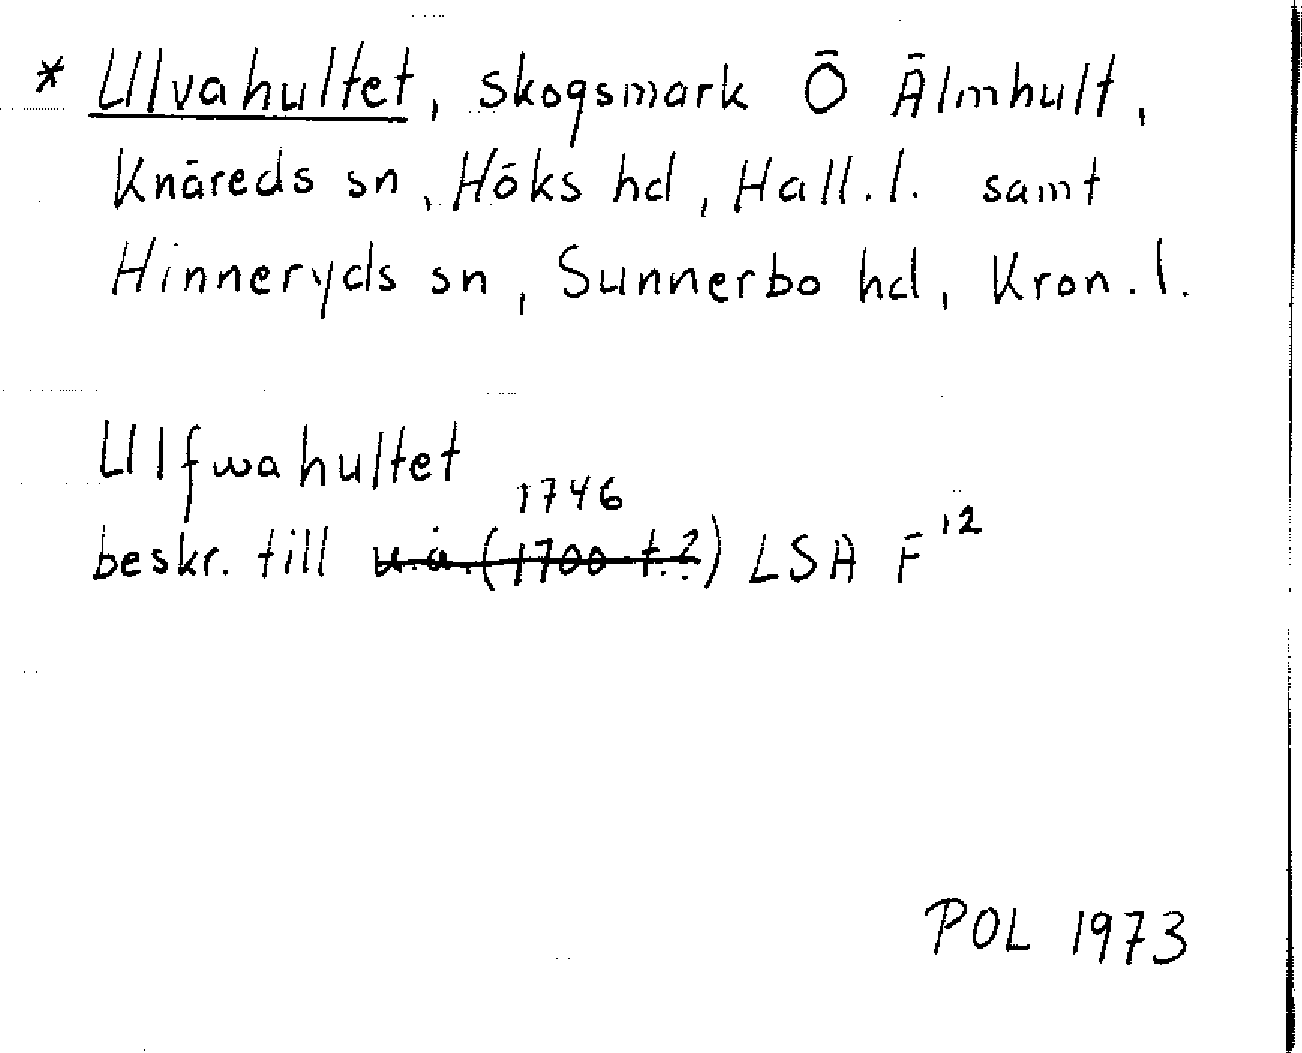 * Ulvahultet, skogsmark Ö Älmhult,
Knäreds sn, Höks hd, Hall.l. samt
Hinneryds sn, Sunnerbo hd, Kron.l.
Ulfwahultet
1746
beskr. till u.å. (1700-t.?) LSA F 12
POL 1973